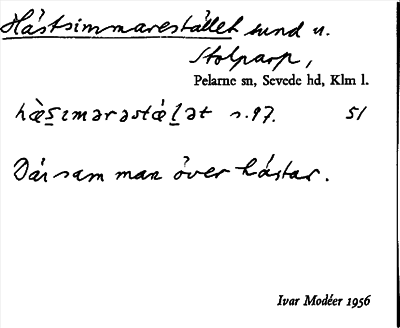 Hästsimmarestället sund u.
Stolparp,
Pelarne sn, Sevede hd, Klm l.
hæ̀s̲ımərəstǽl̲ət s. 97. 51
Där sam man över hästar.
Ivar Modéer 1956